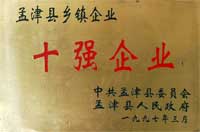 孟津县乡镇企业
十强企业
中共孟津县委员会
孟津县人民政府
一九九七年三月